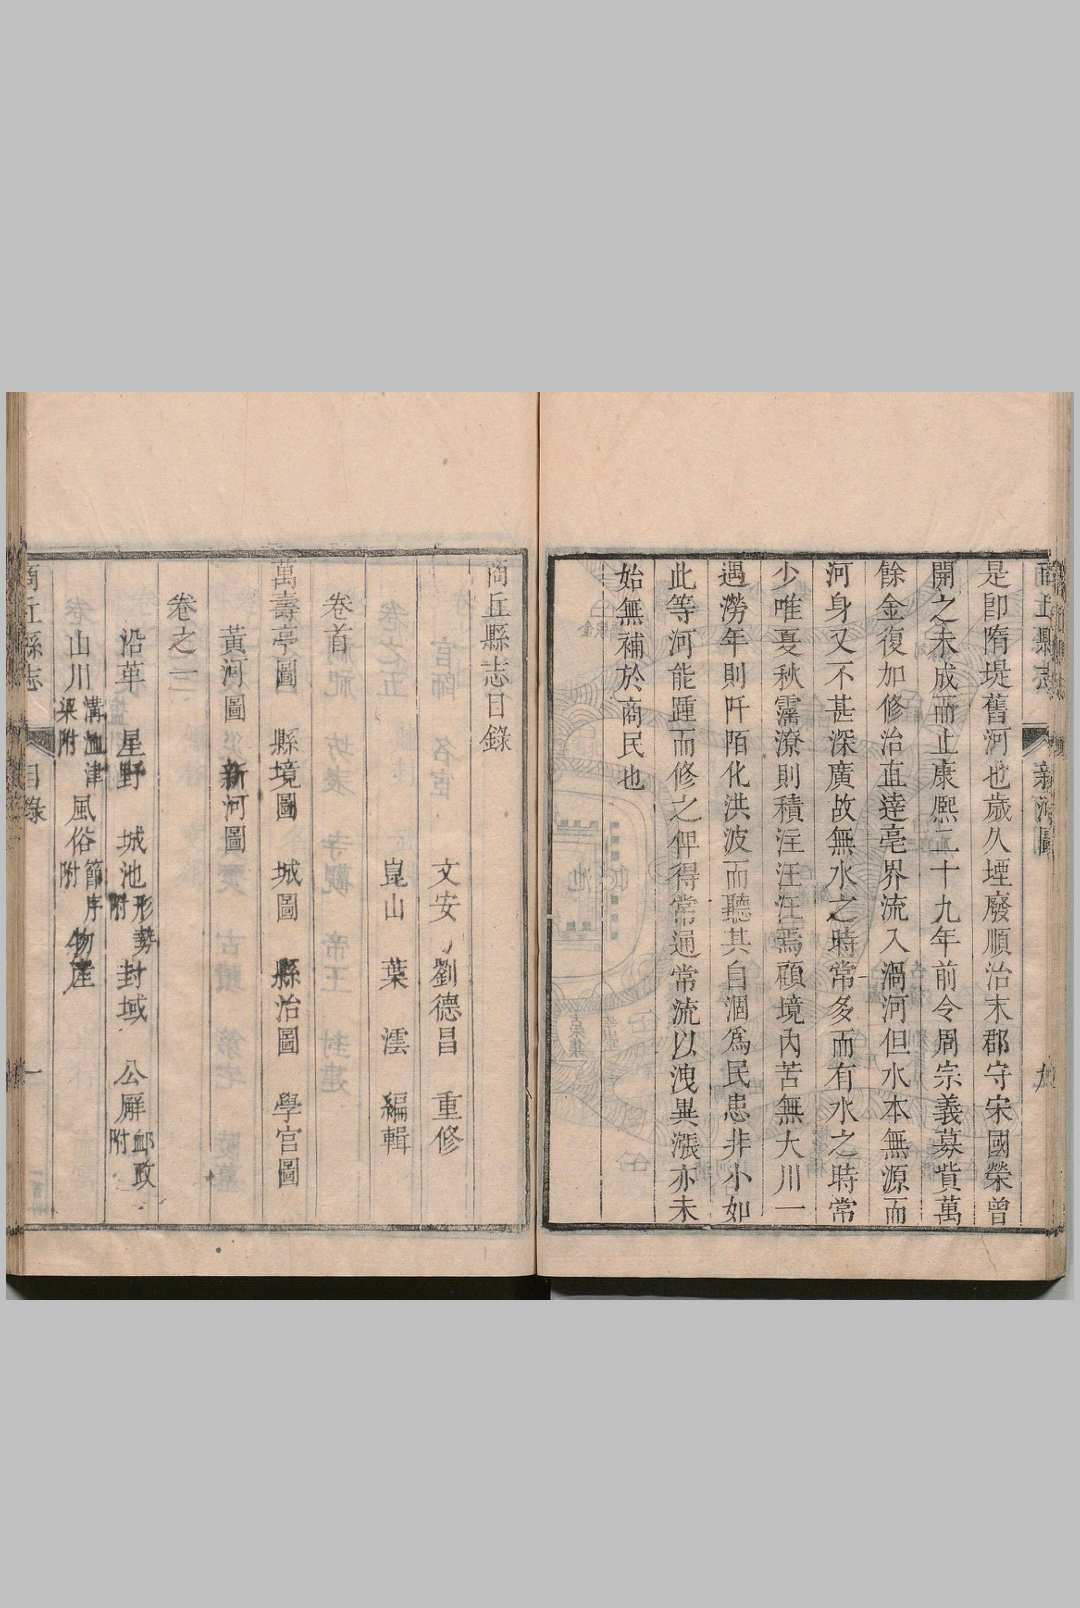 商丘縣志 新河圖 九
是卽隋堤舊河也歲久堙廢順治末郡守宋國榮曾
開之未成而止康熙二十九年前令周宗義募貲萬
餘金復加修治直達亳界流入渦河但水本無源而
河身又不甚深廣故無水之時常多而有水之時常
少唯夏秋霪潦則積注汪汪焉顧境內苦無大川一
遇澇年則阡陌化洪波而聽其自涸爲民患非小如
此等河能踵而修之俾得常通常流以洩異漲亦未
始無補於商民也
商丘縣志目錄
文安 劉德昌 重修
崑山 葉澐 編輯
卷首
萬壽亭圖 縣境圖 城圖 縣治圖 學宮圖
黃河圖 新河圖
卷之一
沿革 星野 城池形勢附 封域 公廨郵政附
山川溝洫津梁附 風俗節序附 物產
商丘縣志 目錄 一